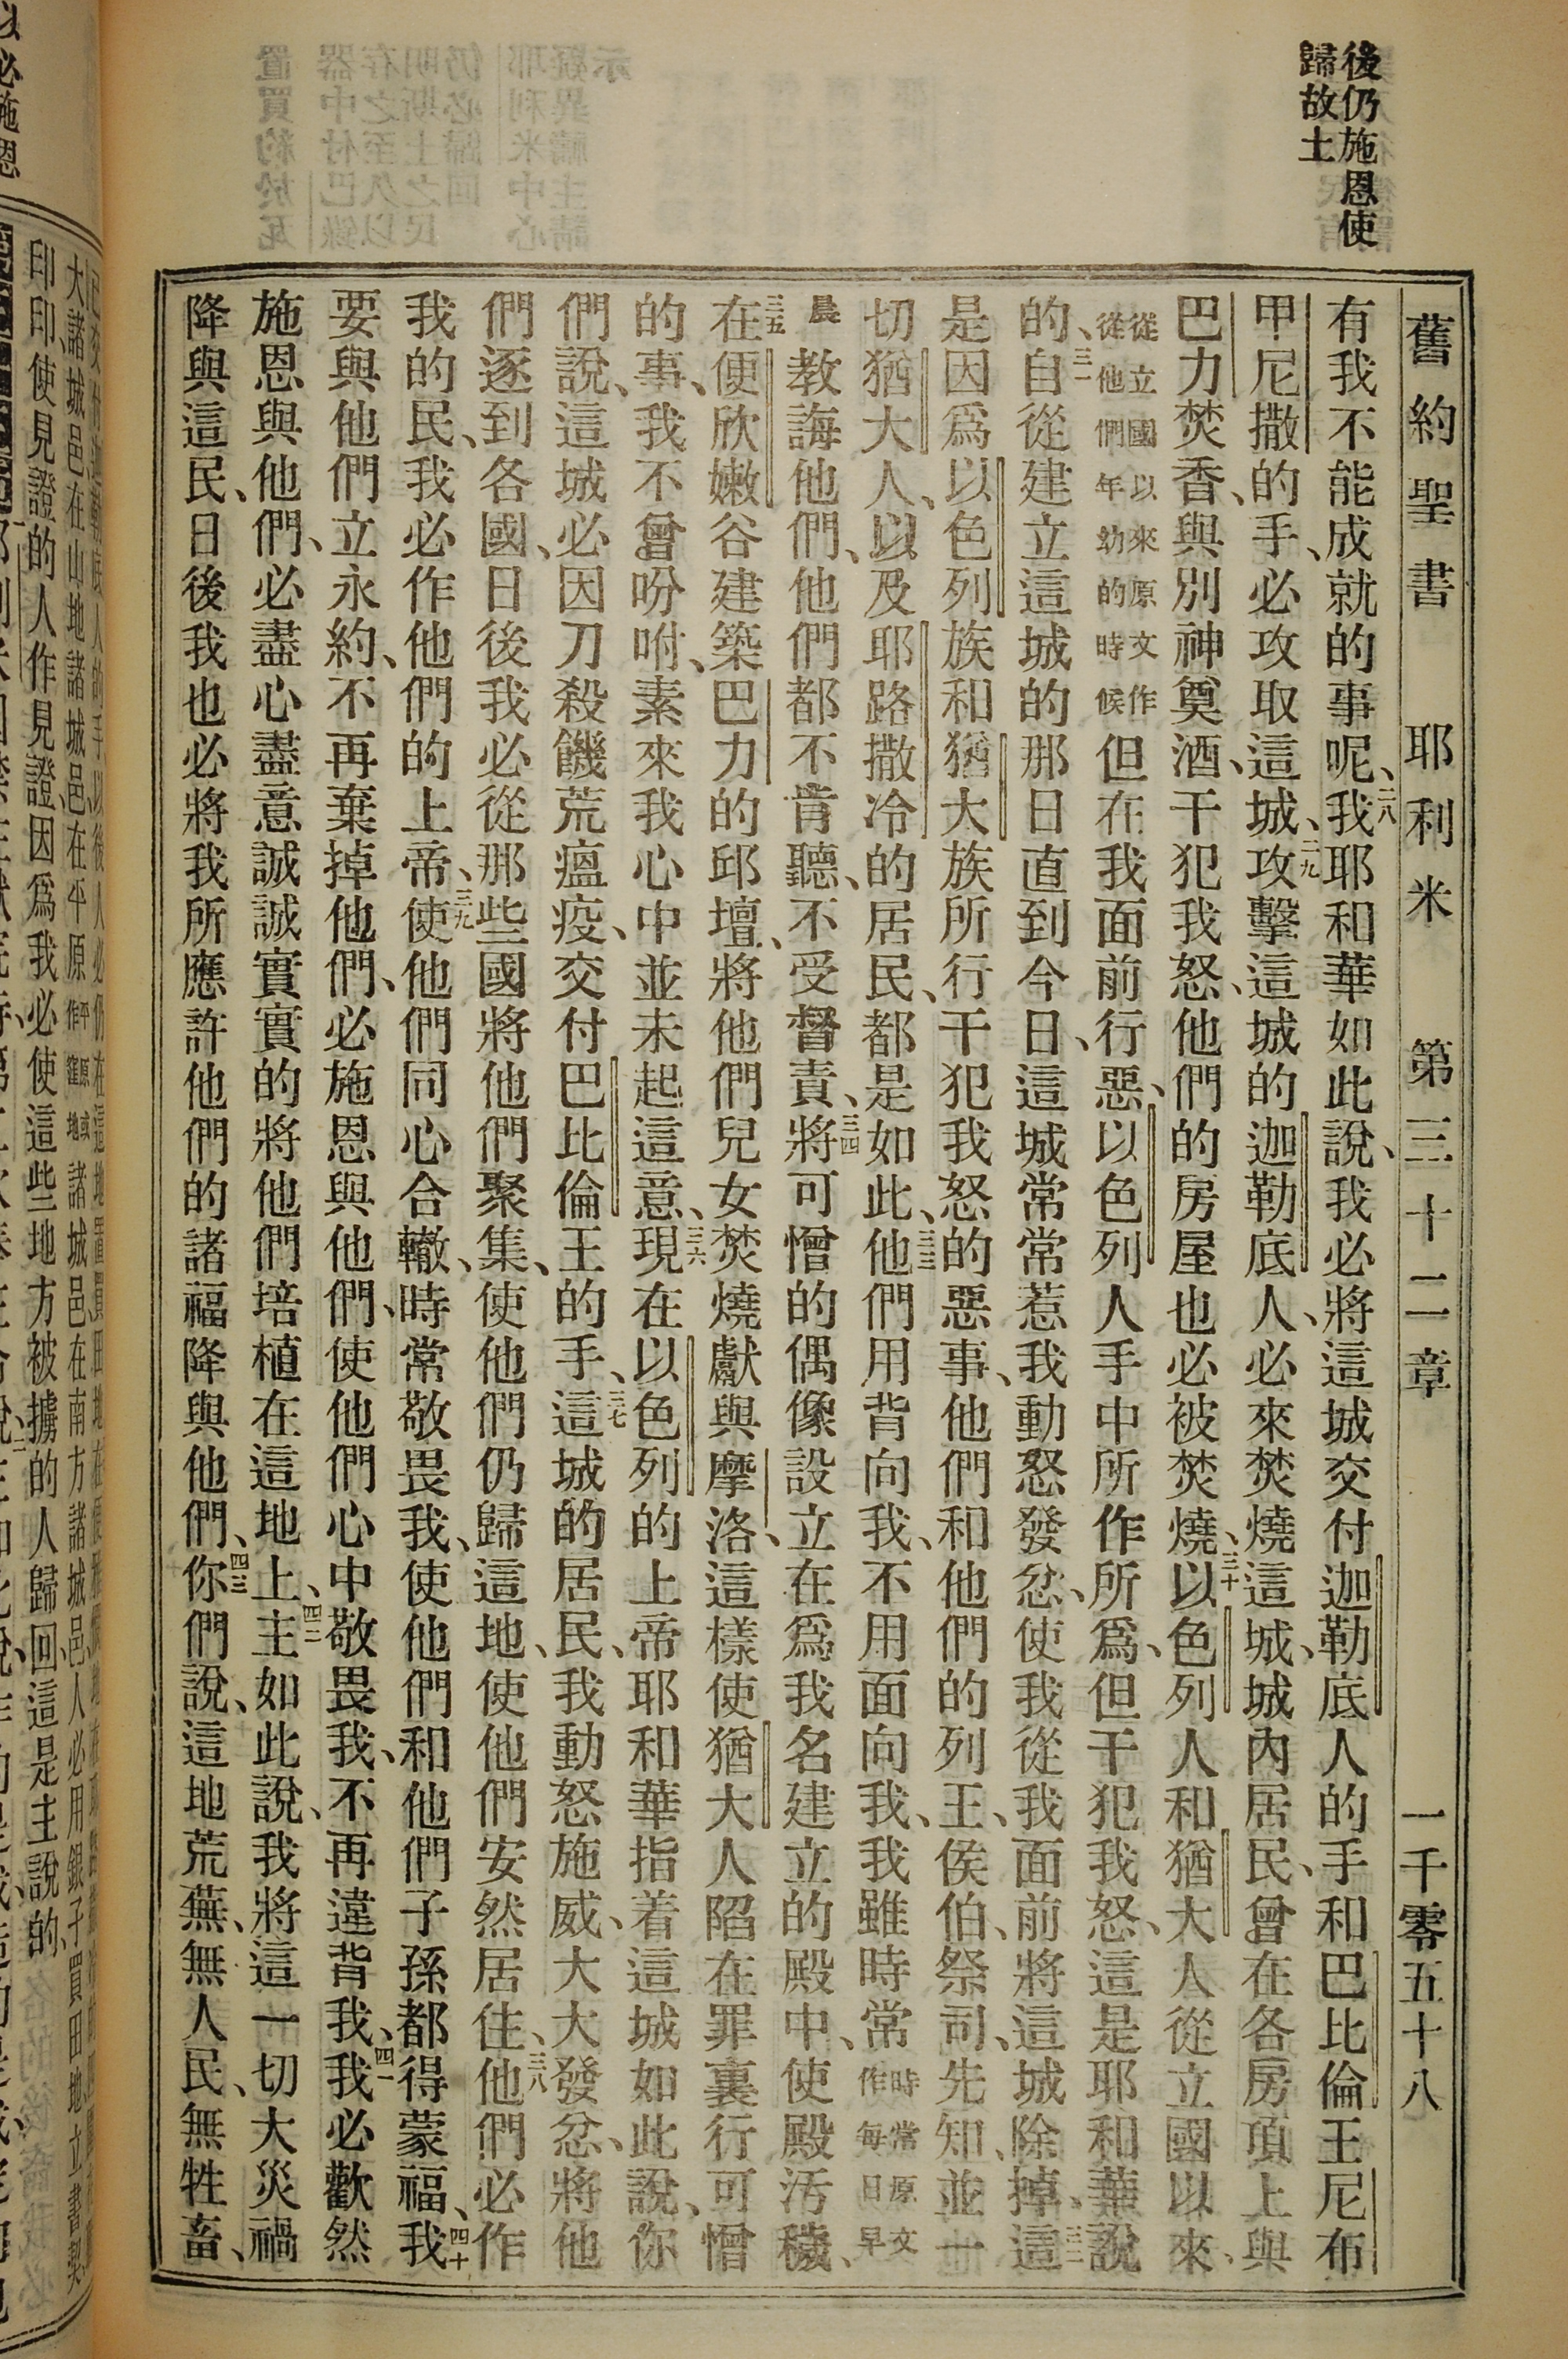 後仍施恩使
歸故土
舊約聖書 耶利米 第三十二章 一千零五十八
有我不能成就的事呢、二八我耶和華如此說、我必將這城交付迦勒底人的手和巴比倫王尼布
甲尼撒的手、必攻取這城、二九攻擊這城的迦勒底人、必來焚燒這城、城內居民、曾在各房頂上與
巴力焚香、與別神奠酒、干犯我怒、他們的房屋也必被焚燒、三十以色列人和猶大人從立國以來、
從立國以來原文作
從他們年幼的時候
但在我面前行惡、以色列人手中所作所爲、但干犯我怒、這是耶和華說
的、三一自從建立這城的那日直到今日、這城常常惹我動怒發忿、使我從我面前將這城除掉、三二這
是因爲以色列族和猶大族所行干犯我怒的惡事、他們和他們的列王、侯伯、祭司、先知、並一
切猶大人、以及耶路撒冷的居民、都是如此、三三他們用背向我、不用面向我、我雖時常
時常原文
作每日早
晨
教誨他們、他們都不肯聽、不受督責、三四將可憎的偶像設立在爲我名建立的殿中、使殿汚穢、
三五在便欣嫩谷建築巴力的邱壇、將他們兒女焚燒獻與摩洛、這樣使猶大人陷在罪裏行可憎
的事、我不曾吩咐、素來我心中並未起這意、三六現在以色列的上帝耶和華指着這城如此說、你
們說、這城必因刀殺饑荒瘟疫、交付巴比倫王的手、三七這城的居民、我動怒施威、大大發忿、將他
們逐到各國、日後我必從那些國將他們聚集、使他們仍歸這地、使他們安然居住、三八他們必作
我的民、我必作他們的上帝、三九使他們同心合轍、時常敬畏我、使他們和他們子孫都得蒙福、四十我
要與他們立永約、不再棄掉他們、必施恩與他們、使他們心中敬畏我、不再違背我、四一我必歡然
施恩與他們、必盡心盡意誠誠實實的將他們培植在這地上、四二主如此說、我將這一切大災禍
降與這民、日後我也必將我所應許他們的諸福降與他們、四三你們說、這地荒蕪、無人民、無牲畜、
印印、使見證的人作見證、因爲我必使這些地方被擄的人歸回、這是主說的